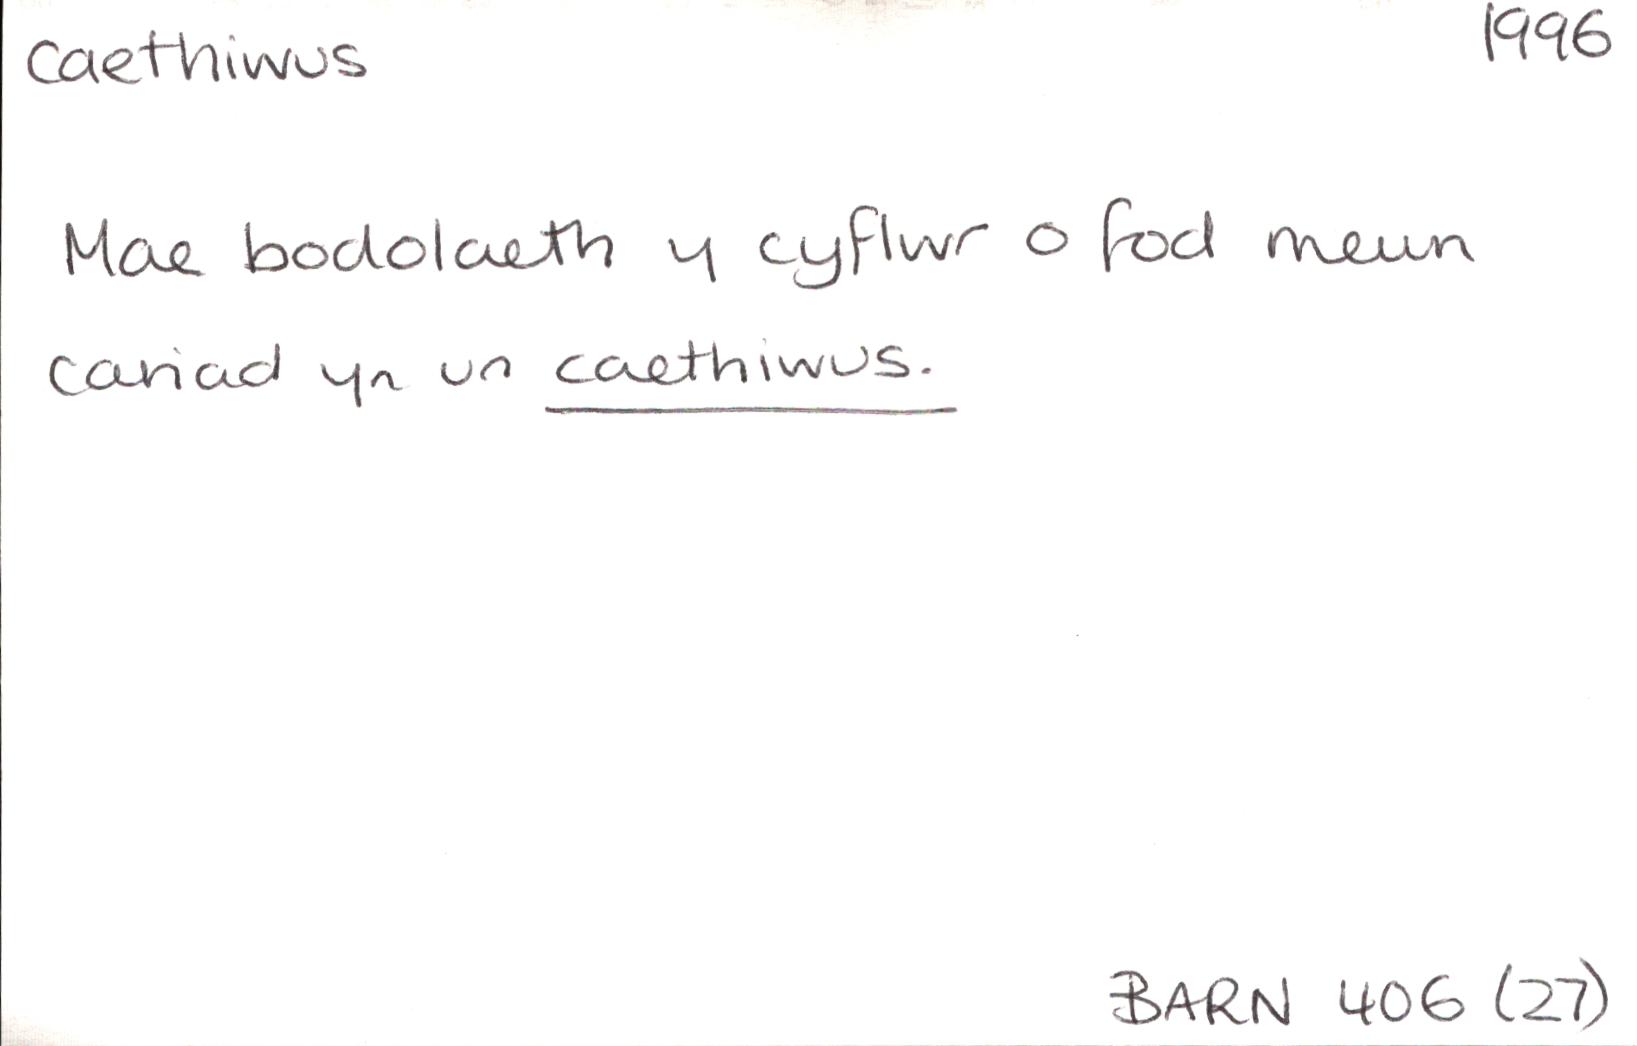 caethiwus 1996
Mae bodolaeth y cyflwr o fod mewn
cariad yn un caethiwus.
BARN 406 (27)